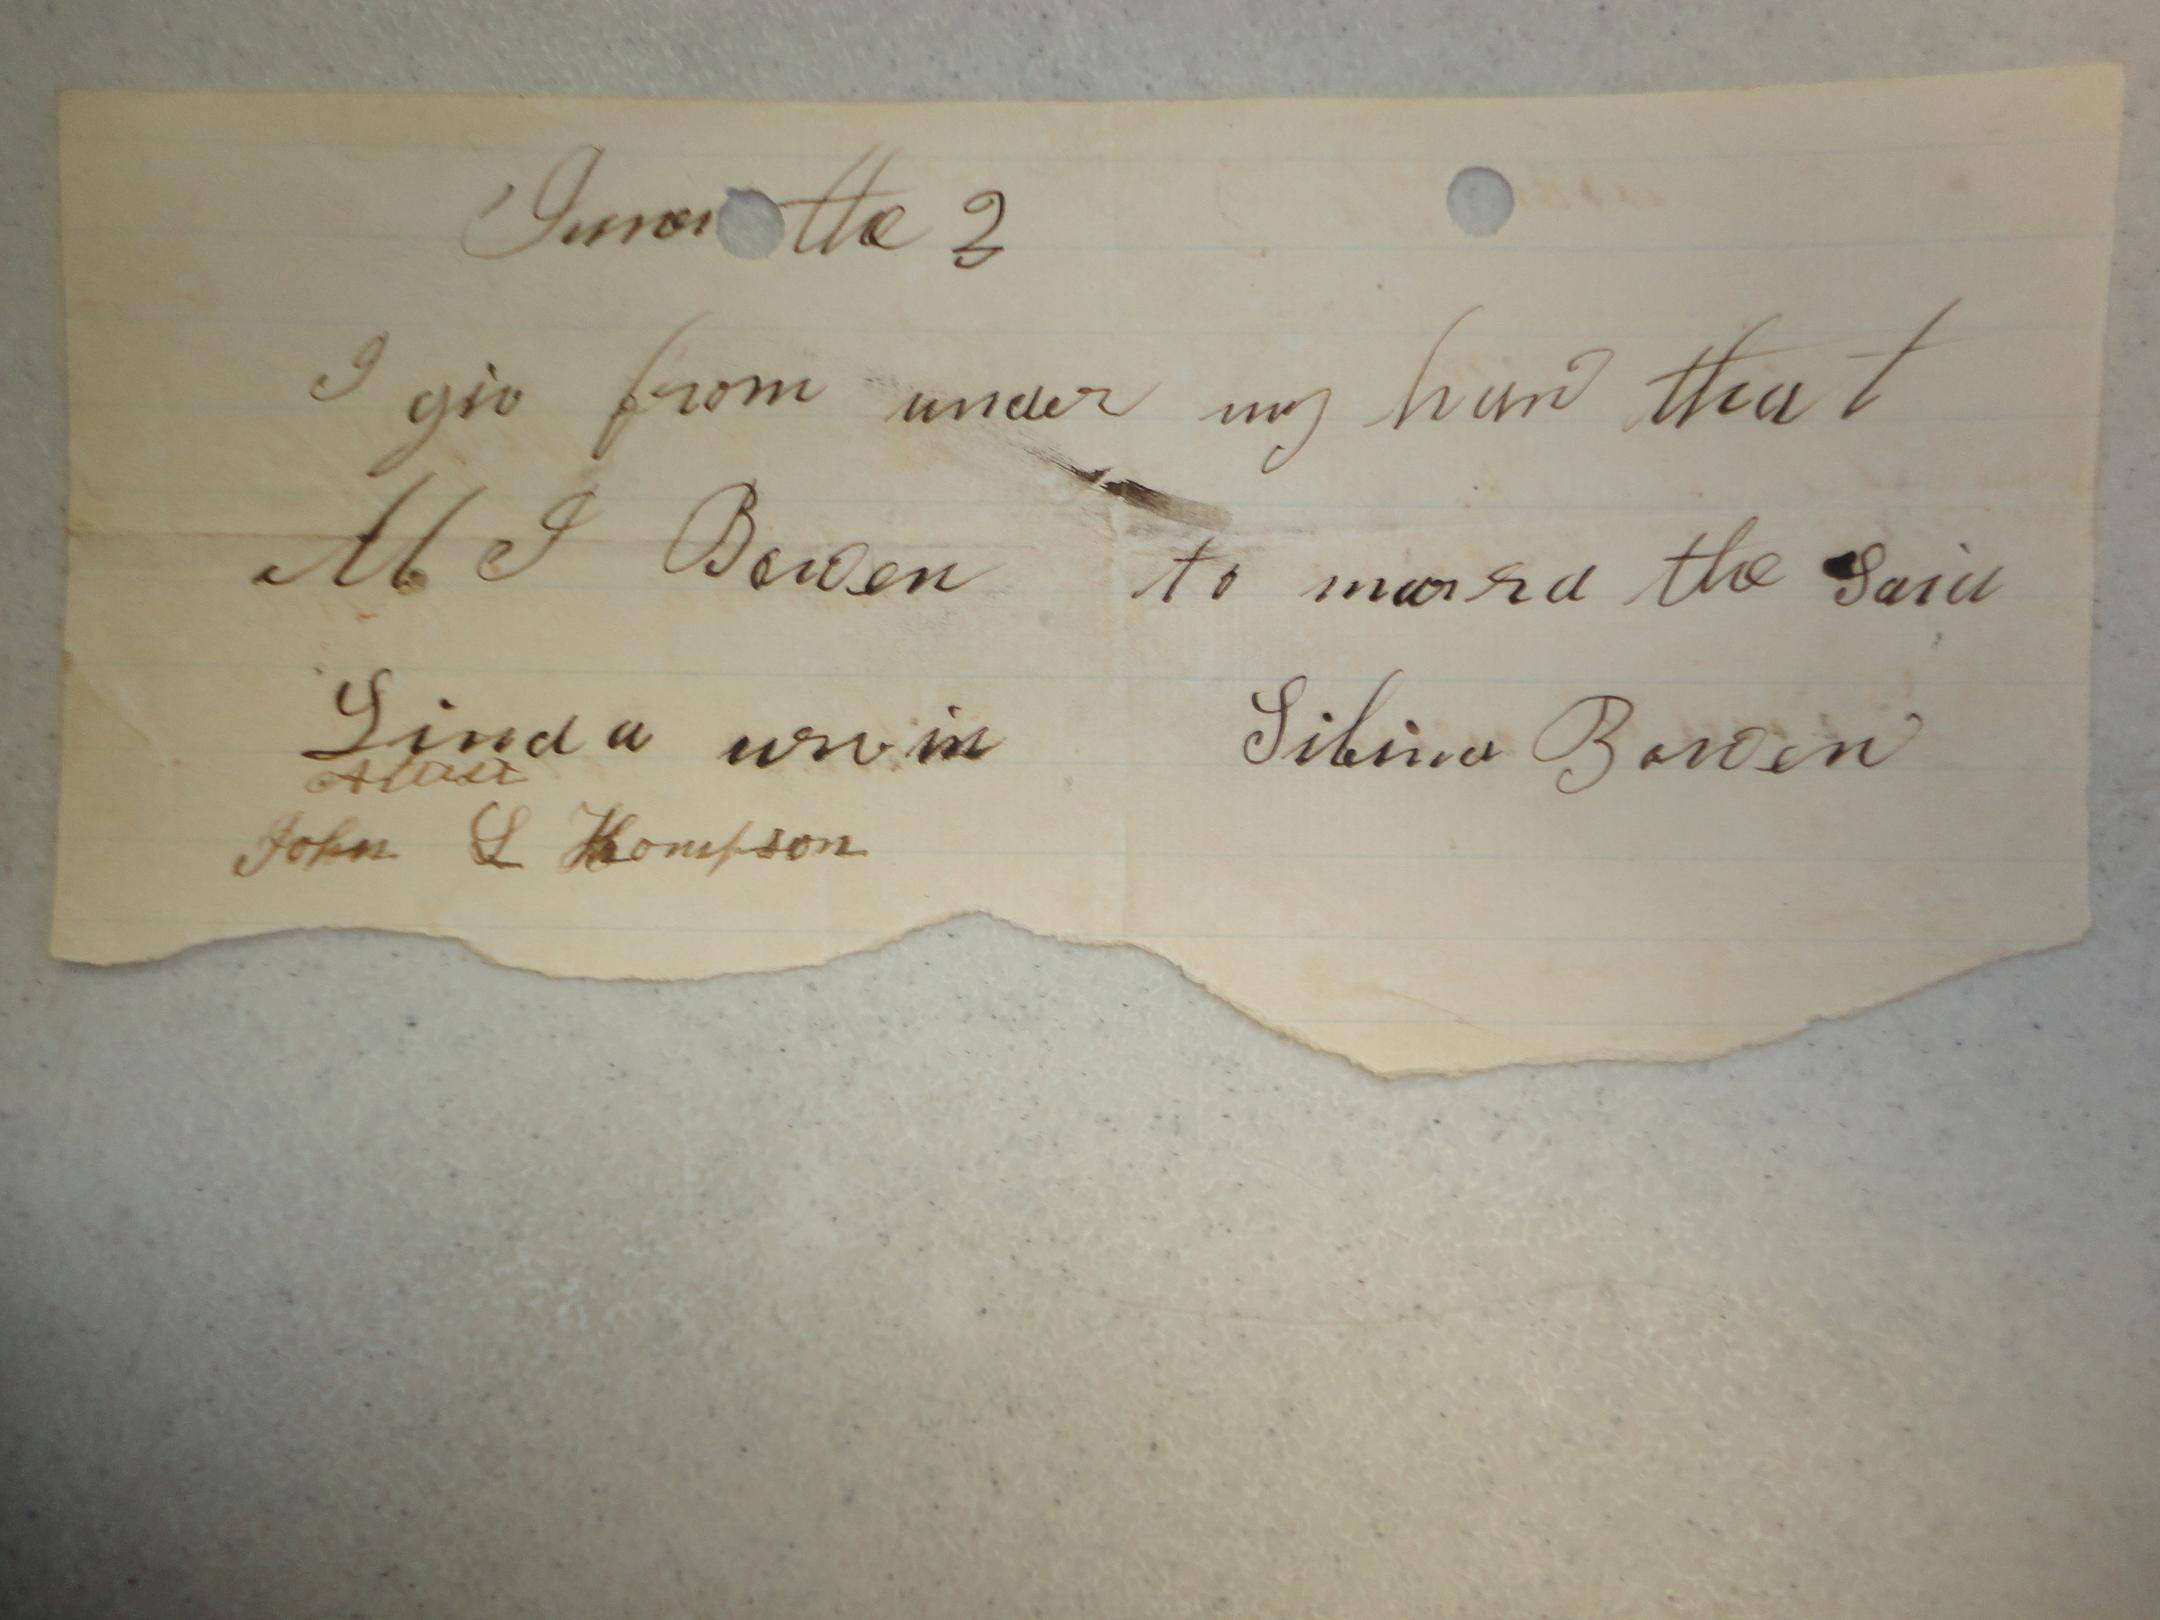 June the 2
I giv from under my hand that
M I Bowen to marra the Said
Linda urvin Sibina Bowen
Attest
John L Thompson